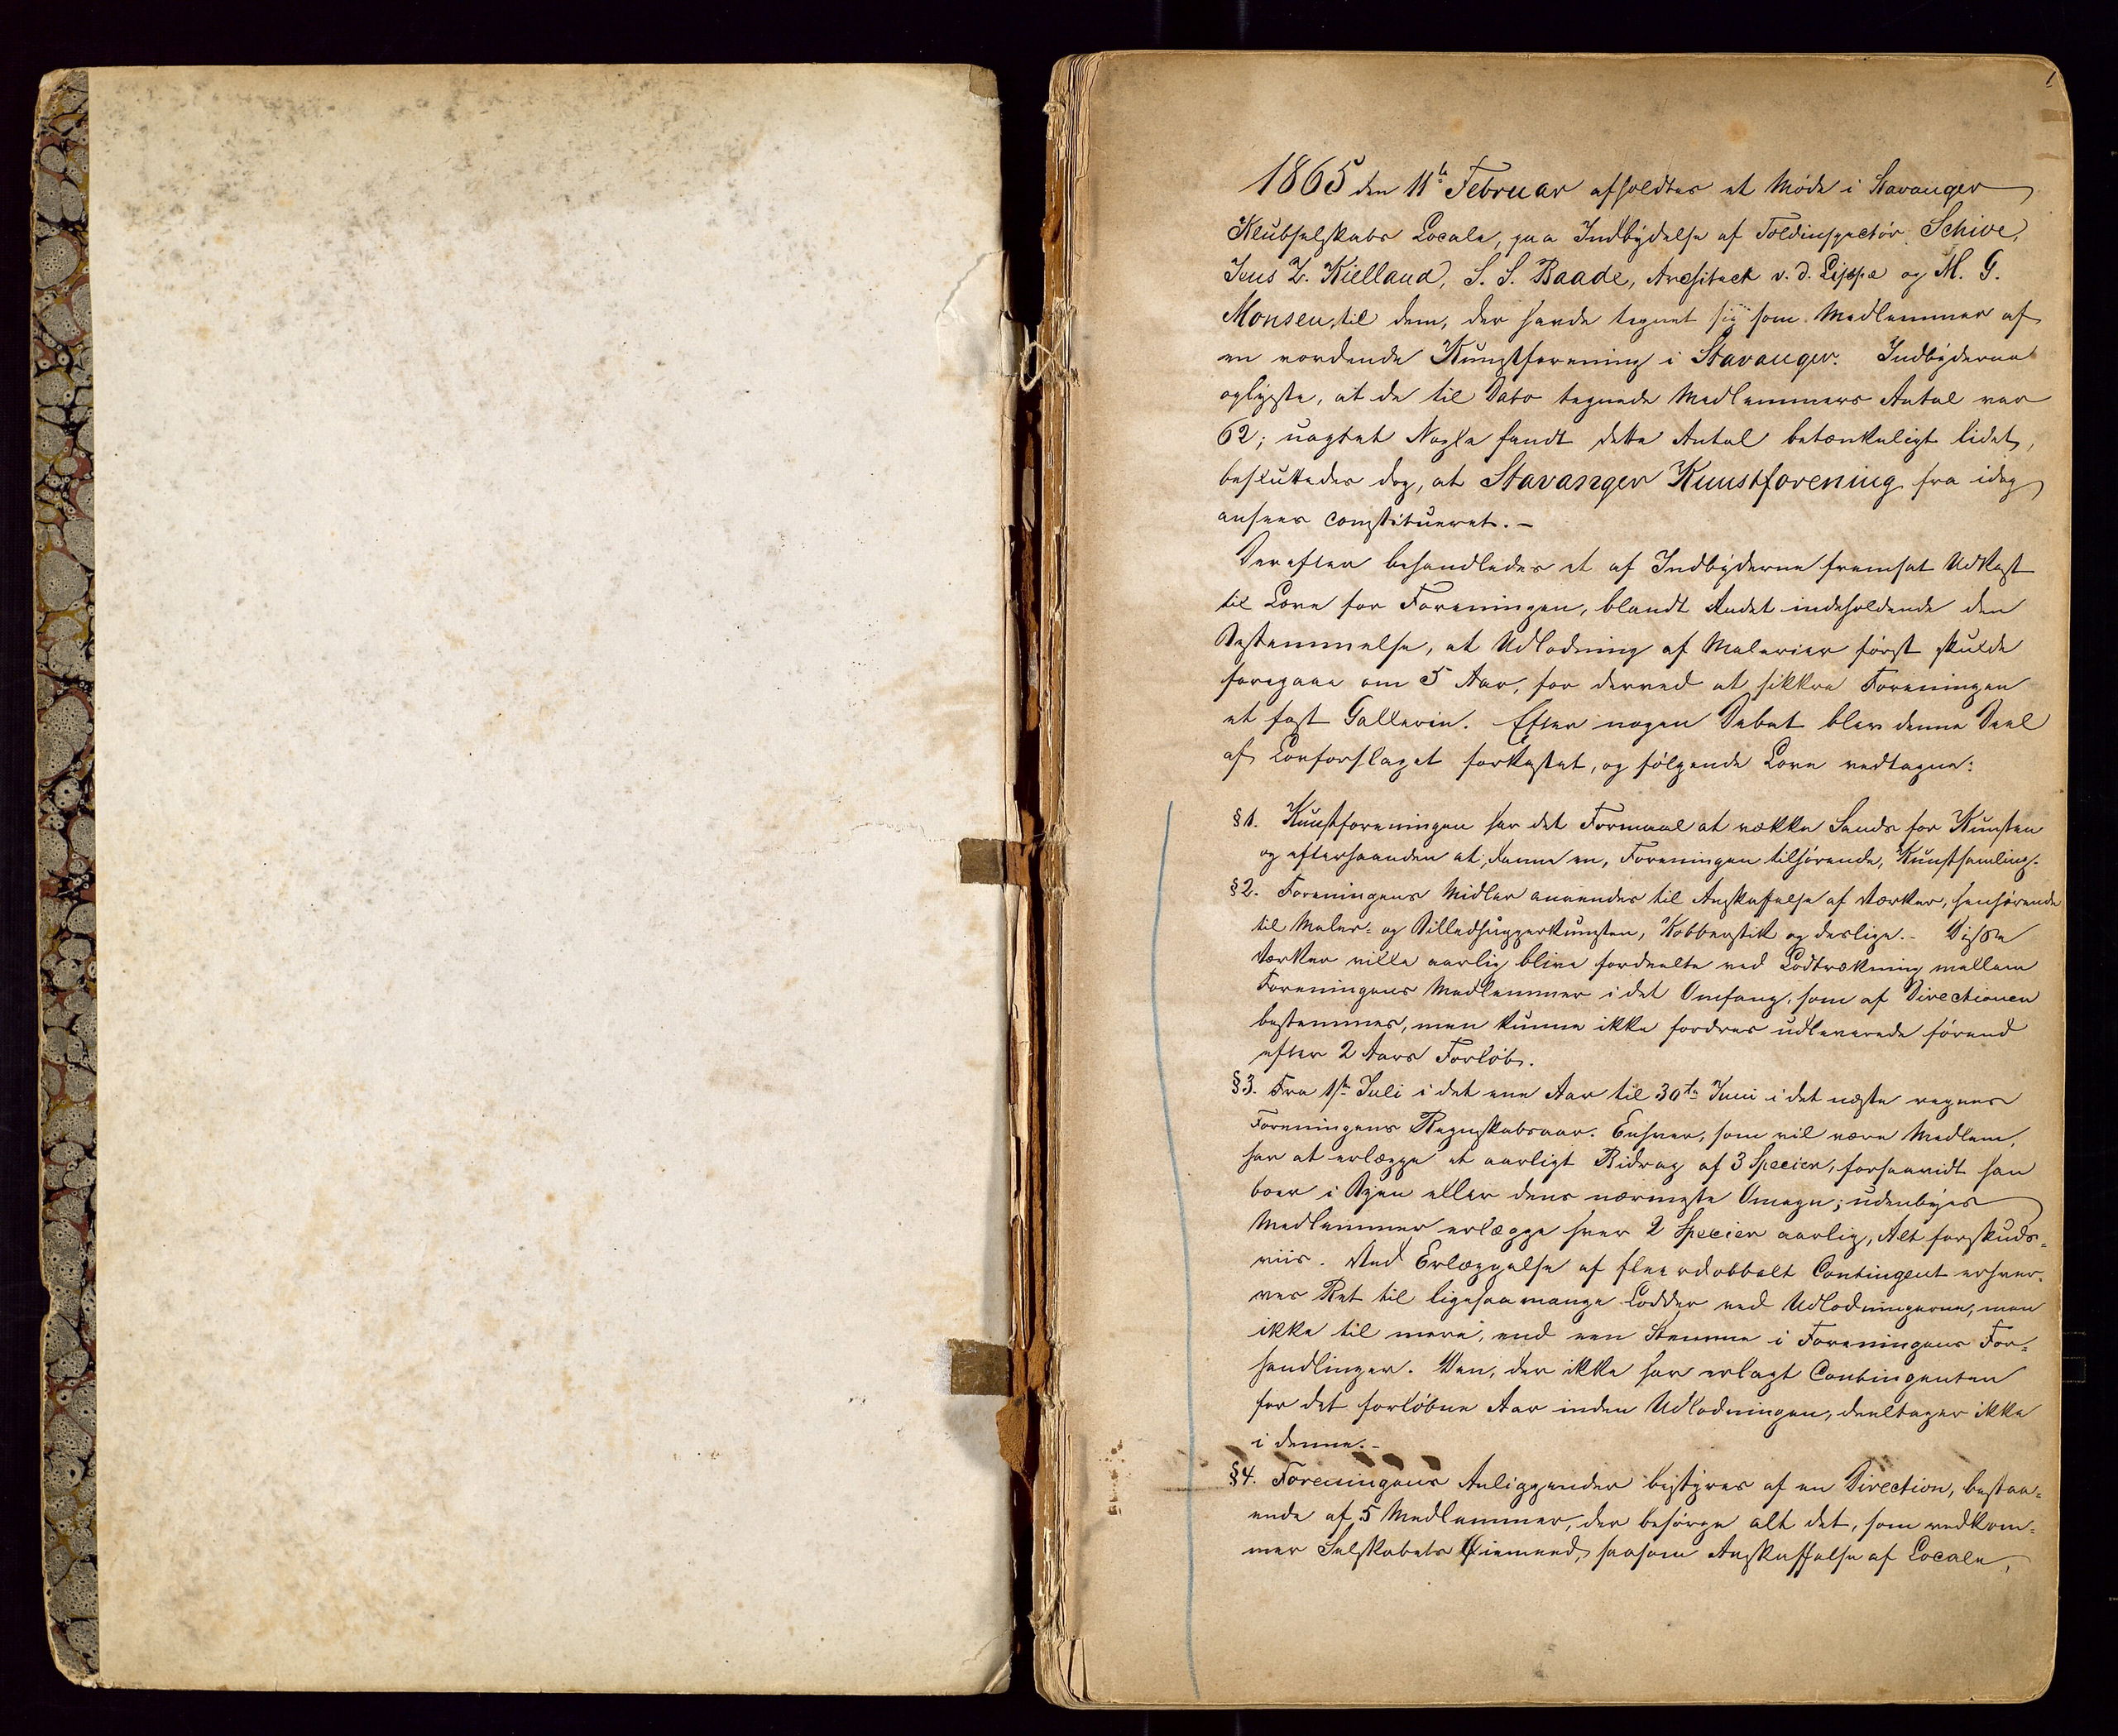 1
1865 den 11te Februar afholdtes et Møde i Stavanger
Klubselskabs Locale, paa Indbydelse af Toldinspectør Schive,
Jens Z. Kielland, S. S. Baade, Architect v. d. Lippe og M. G.
Monsen, til dem, der havde tegnet sig som Medlemmer af
en vordende Kunstforening i Stavanger. Indbyderne
oplyste, at de til Dato tegnede Medlemmers Antal var
62; uagtet Nogle fandt dette Antal betænkeligt lidet,
besluttedes dog, at Stavanger Kunstforening fra idag
ansees constitueret. –
Derefter behandledes et af Indbyderne fremsat Udkast
til Love for Foreningen, blandt Andet indeholdende den
Bestemmelse, at Udlodning af Malerier først skulde
foregaae om 5 Aar, for derved at sikkre Foreningen
et fast Gallerie. Efter nogen Debat blev denne Deel
af Lovforslaget forkastet, og følgende Love vedtagne:
§ 1. Kunstforeningen har det Formaal at vække Sands for Kunsten
og efterhaanden at danne en, Foreningen tilhørende, Kunstsamling.
§ 2. Foreningens Midler anvendes til Anskaffelse af Værker, henhørende
til Maler- og Billedhuggerkunsten, Kobberstik og deslige. – Disse
Værker ville aarlig blive fordeelte ved Lodtrækning mellem
Foreningens Medlemmer i det Omfang, som af Directionen
bestemmes, men kunne ikke fordres udleverede førend
efter 2 Aars Forløb.
§ 3. Fra 1ste Juli i det ene Aar til 30te Juni i det næste regnes
Foreningens Regnskabsaar. Enhver, som vil være Medlem,
har at erlægge et aarligt Bidrag af 3 Specier, forsaavidt han
boer i Byen eller dens nærmeste Omegn; udenbyes
Medlemmer erlægge hver 2 Specier aarlig, Alt forskuds-
viis. Ved Erlæggelse af fleerdobbelt Contingent erhver-
ves Ret til ligesaamange Lodder ved Udlodningerne, men
ikke til mere, end een Stemme i Foreningens For-
handlinger. Den, der ikke har erlagt Contingenten
for det forløbne Aar inden Udlodningen, deeltager ikke
i denne. –
§ 4. Foreningens Anliggender bestyres af en Direction, bestaa-
ende af 5 Medlemmer, der besørge alt det, som vedkom-
mer Selskabets Øiemed, saasom Anskaffelse af Locale,